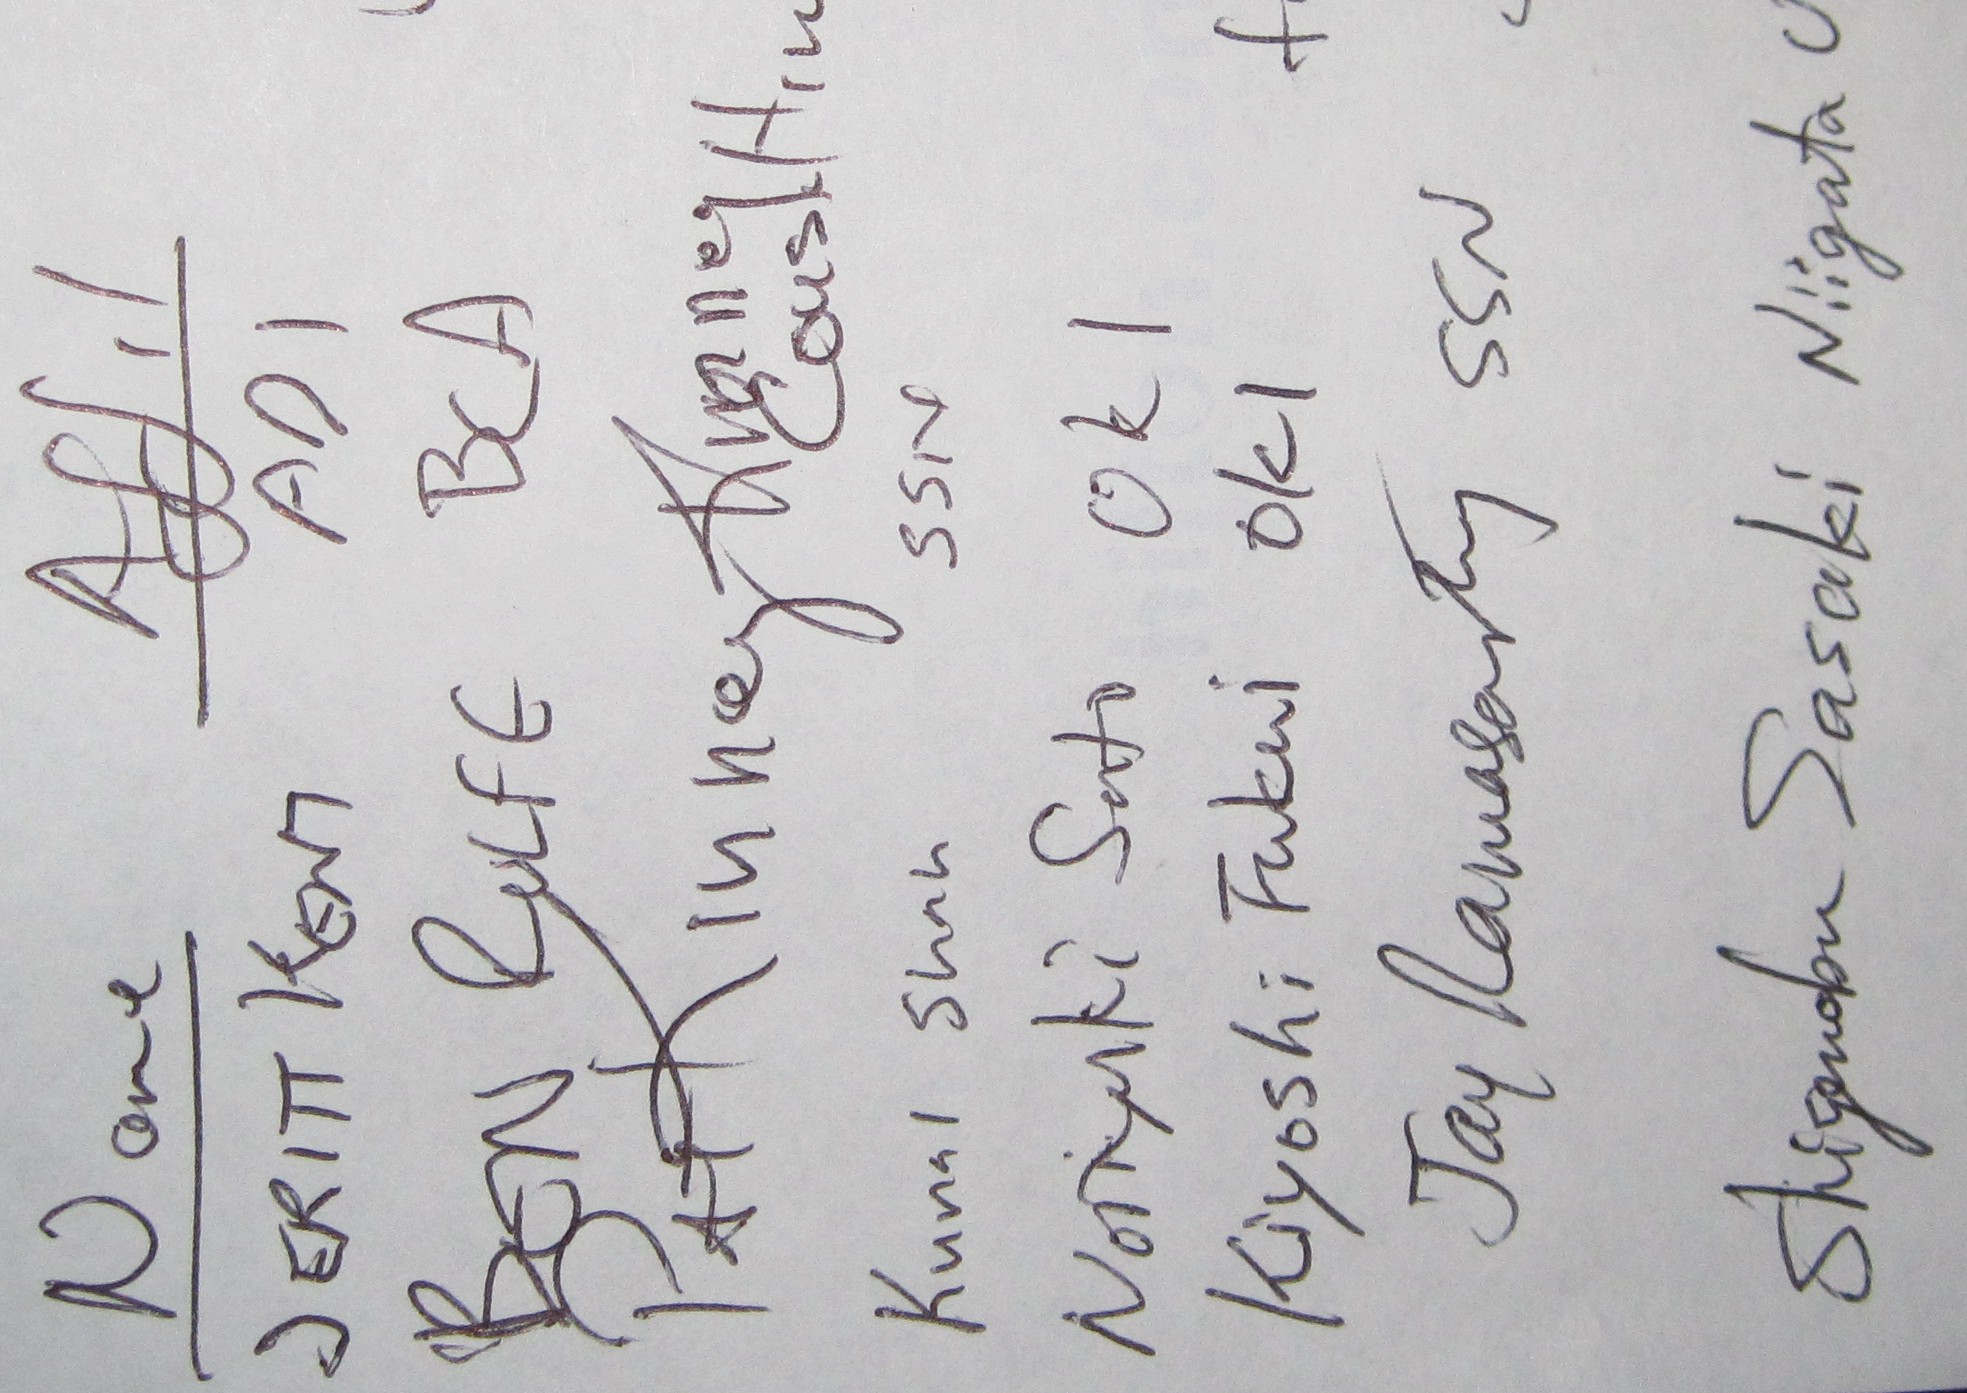 Name Affil
JERITT Kent ADI
RON Rolfe BCA
PAT Kinney Kinney
Consl
Kunal Shah SSN
Noriyuki Sato OkI
Kiyoshi Fukui OKI
Jay Ramasastry SSN
Shigenobu Sasaki Niigata U